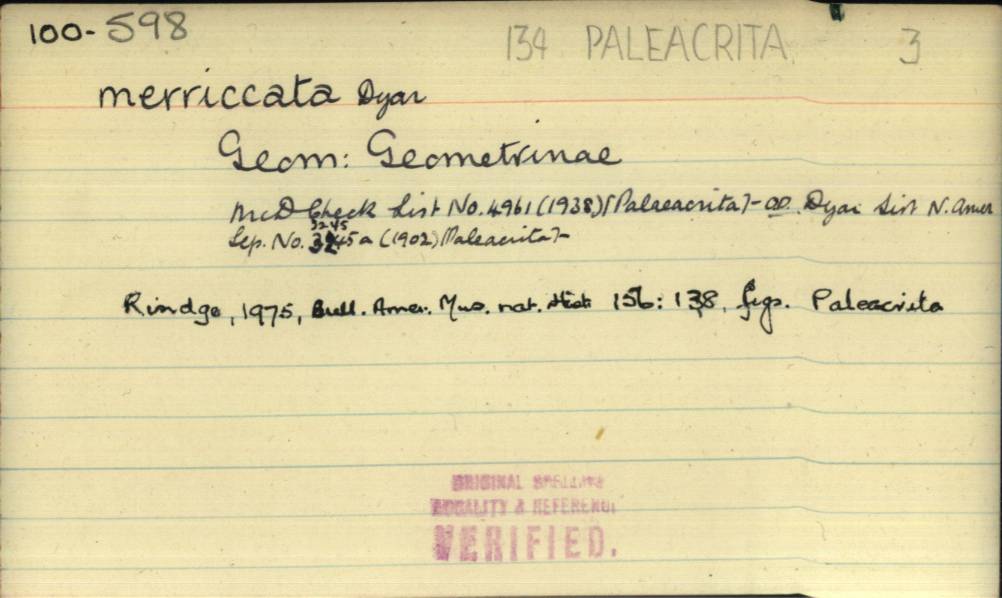 100-598
134 PALEACRITA 3
merriccata Dyar
Geom: Geometrinae
McD Check List No. 4961 (1938) [Palaeacrita]- Dyar List N. Amer
3245
Lep. No. 3245a (1902) [Paleacrita]-
Rindge, 1975, Bull. Amer. Mus. nat. Hist 156: 138, figs. Paleacrita
ORIGINAL SPELLING
LOCALITY & REFERENCE
VERIFIED.